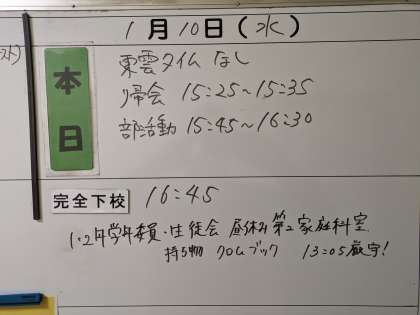 1月10日(水)
本日
東雲タイム なし
帰会 15:25~15:35
部活動 15:45~16:30
完全下校 16:45
1・2年学年委員・生徒会 昼休み 第2家庭科室
持ち物 クロムブック 13:05厳守!